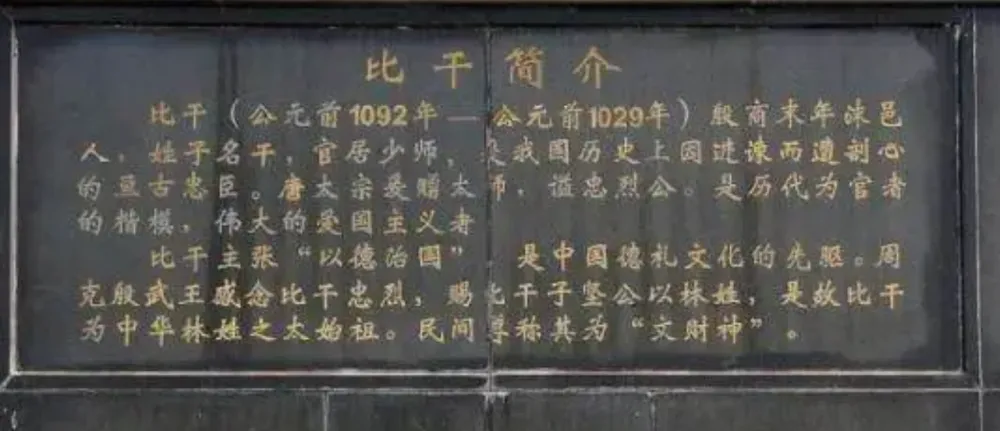 比干简介
比干（公元前1092年——公元前1029年）殷商末年沬邑
人，姓子名干，官居少师，是我国历史上因进谏而遭剖心
的亘古忠臣。唐太宗爰赠太师，谥忠烈公。是历代为官者
的楷模，伟大的爱国主义者
比干主张“以德治国” 是中国德礼文化的先驱。周
克殷武王感念比干忠烈，赐比干子坚公以林姓，是故比干
为中华林姓之太始祖。民间尊称其为“文财神”。